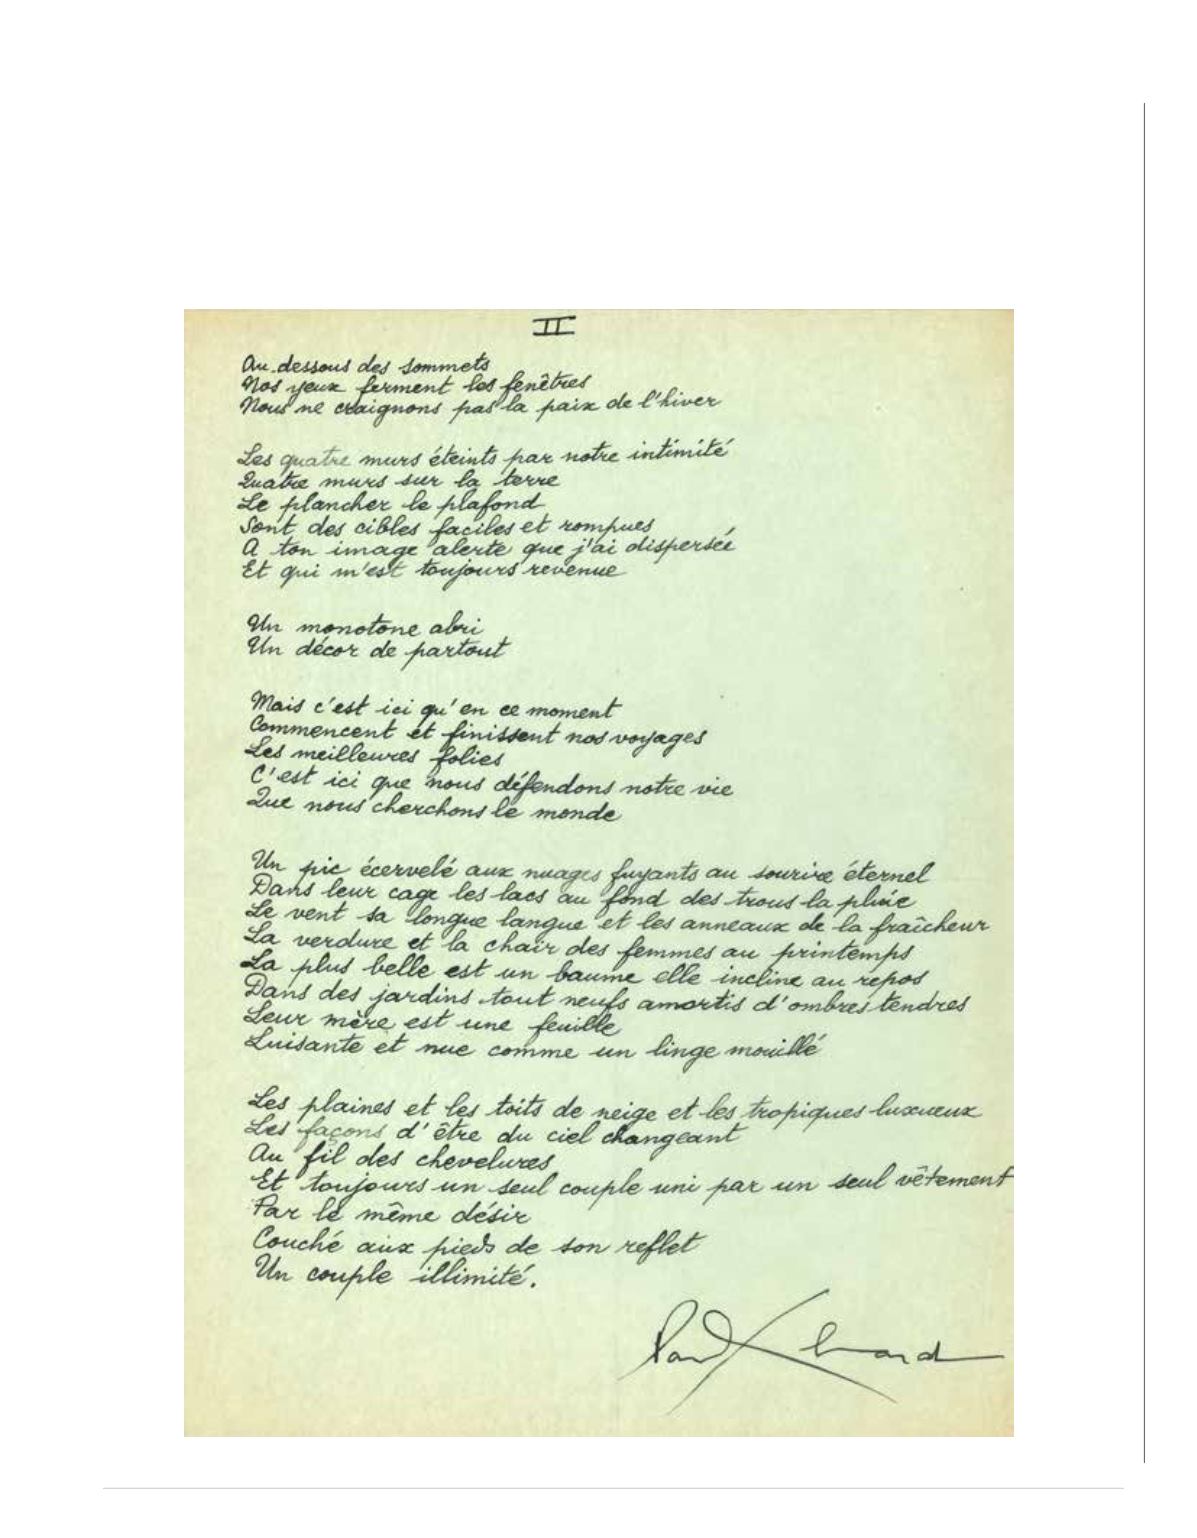 II
Au dessous des sommets
Nos yeux ferment les fenêtres
Nous ne craignons pas la paix de l'hiver
Les quatre murs éteints par notre intimité
Quatre murs sur la terre
Le plancher le plafond
Sont des cibles faciles et rompues
A ton image alerte que j'ai dispersée
Et qui m'est toujours revenue
Un monotone abri
Un décor de partout
Mais c'est ici qu'en ce moment
Commencent et finissent nos voyages
Les meilleures folies
C'est ici que nous défendons notre vie
Que nous cherchons le monde
Un pic écervelé aux nuages fuyants au sourire éternel
Dans leur cage les lacs au fond des trous la pluie
Le vent sa longue langue et les anneaux de la fraîcheur
La verdure et la chair des femmes au printemps
La plus belle est un baume elle incline au repos
Dans des jardins tout neufs amortis d'ombres tendres
Leur mère est une feuille
Luisante et nue comme un linge mouillé
Les plaines et les toits de neige et les tropiques luxueux
Les façons d'être du ciel changeant
Au fil des chevelures
Et toujours un seul couple uni par un seul vêtement
Par le même désir
Couché aux pieds de son reflet
Un couple illimité.
Paul Eluard